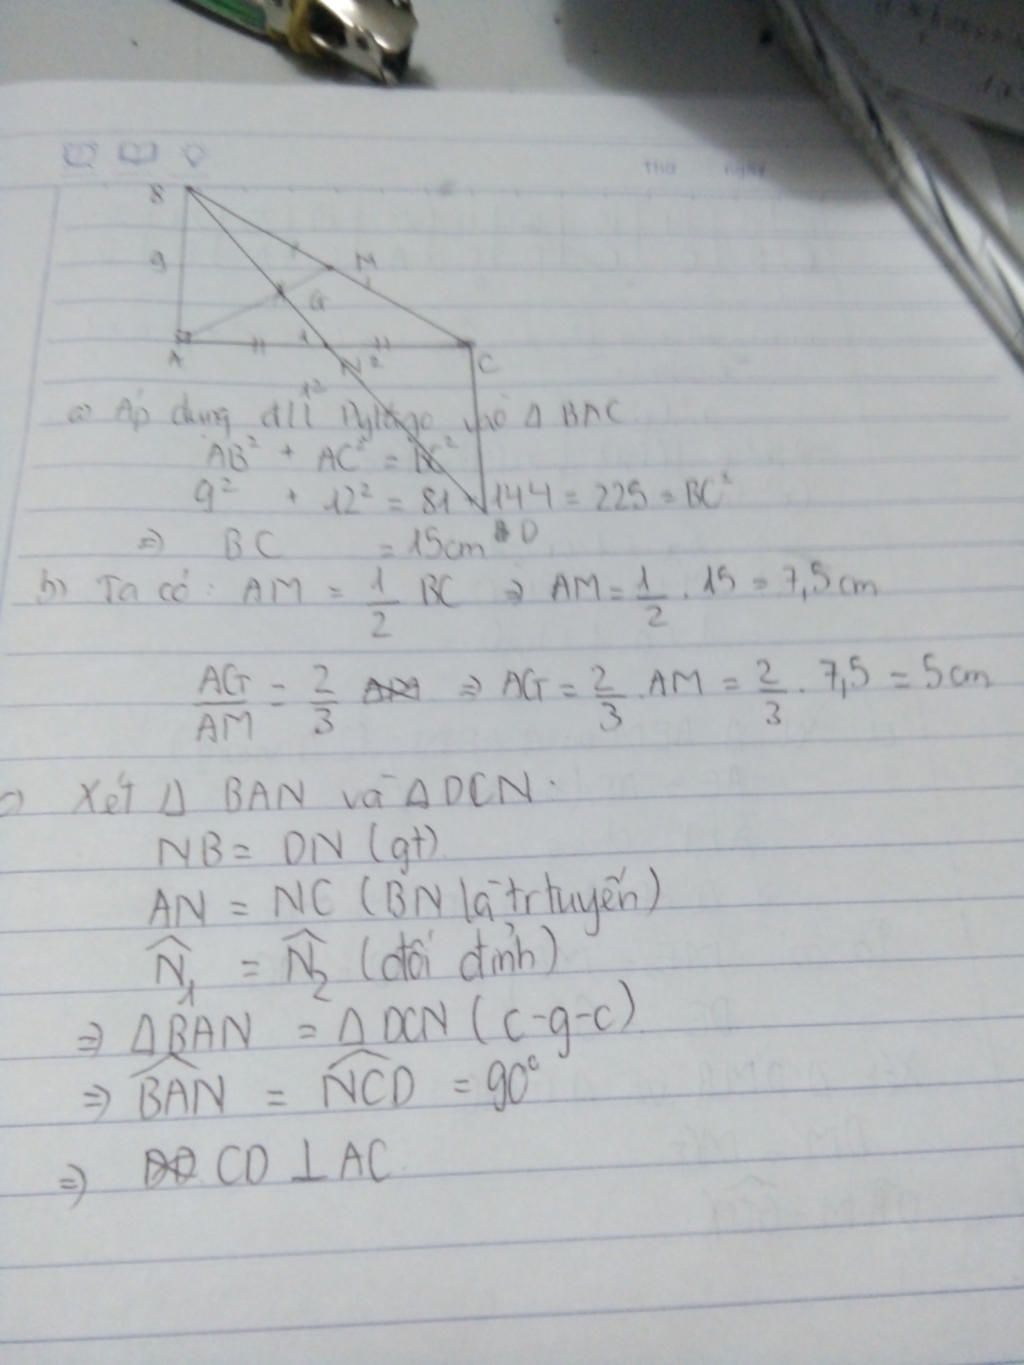 Thứ ngày
B
9
M
G
A
1
N 2
C
12
a) Áp dụng đlí Pytago vào Δ BAC
AB² + AC² = BC²
9² + 12² = 81 144 = 225 = BC²
⇒ BC = 15cm D
b) Ta có: AM = 1/2 BC ⇒ AM = 1/2 . 15 = 7,5cm
AG/AM = 2/3 ⇒ AG = 2/3 . AM = 2/3 . 7,5 = 5cm
c) Xét Δ BAN và Δ DCN.
NB = DN (gt)
AN = NC (BN là trtuyến)
N̂₁ = N̂₂ (đối đỉnh)
⇒ Δ BAN = Δ DCN (c-g-c)
⇒ BAN = NCD = 90°
⇒ CD ⊥ AC